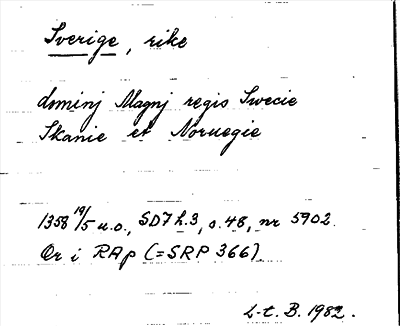 Sverige, rike
dominj Magnj regis Swecie
Skanie et Noruegie
1358 19/5 u.o., SD7 h.3, s.48, nr 5902.
Or i RAp (=SRP 366)
L-t. B. 1982.